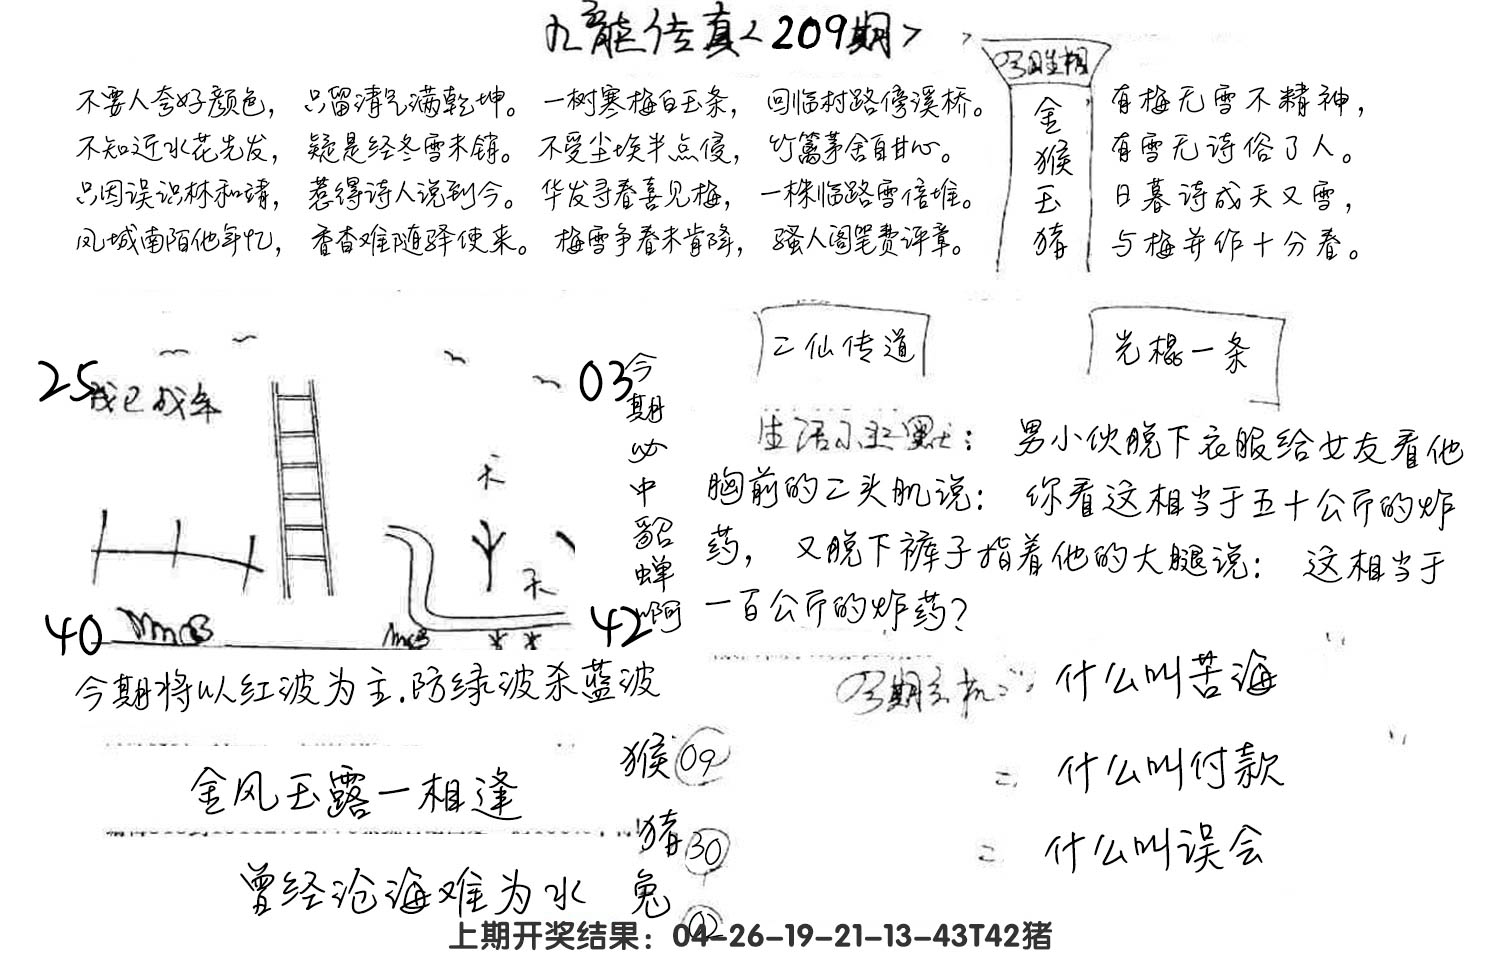 九龙传真<209期>
不要人夸好颜色， 只留清气满乾坤。 一树寒梅白玉条， 回临村路傍溪桥。
不知近水花先发， 疑是经冬雪未销。 不受尘埃半点侵， 竹篱茅舍自甘心。
只因误识林和靖， 惹得诗人说到今。 华发寻春喜见梅， 一株临路雪倍堆。
凤城南陌他年忆， 香杳难随驿使来。 梅雪争春未肯降， 骚人阁笔费评章。
金
猴
玉
猪
有梅无雪不精神，
有雪无诗俗了人。
日暮诗成天又雪，
与梅并作十分春。
25
03
40
42
今期必中貂蝉啊
今期将以红波为主.防绿波杀蓝波
金风玉露一相逢
曾经沧海难为水
猴 09
猪 30
兔 02
二仙传道
光棍一条
生活小幽默： 男小伙脱下衣服给女友看他
胸前的二头肌说： 你看这相当于五十公斤的炸
药， 又脱下裤子指着他的大腿说： 这相当于
一百公斤的炸药？
什么叫苦海
二、 什么叫付款
什么叫误会
上期开奖结果：04-26-19-21-13-43T42猪